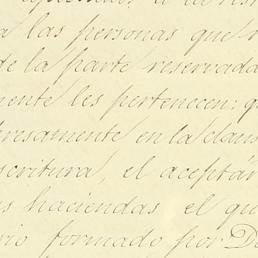 a las personas que
de la parte reservada
mente les pertenecen: q
presamente en la claus
scritura, el aceptar
s haciendas el qu
rio formado por D